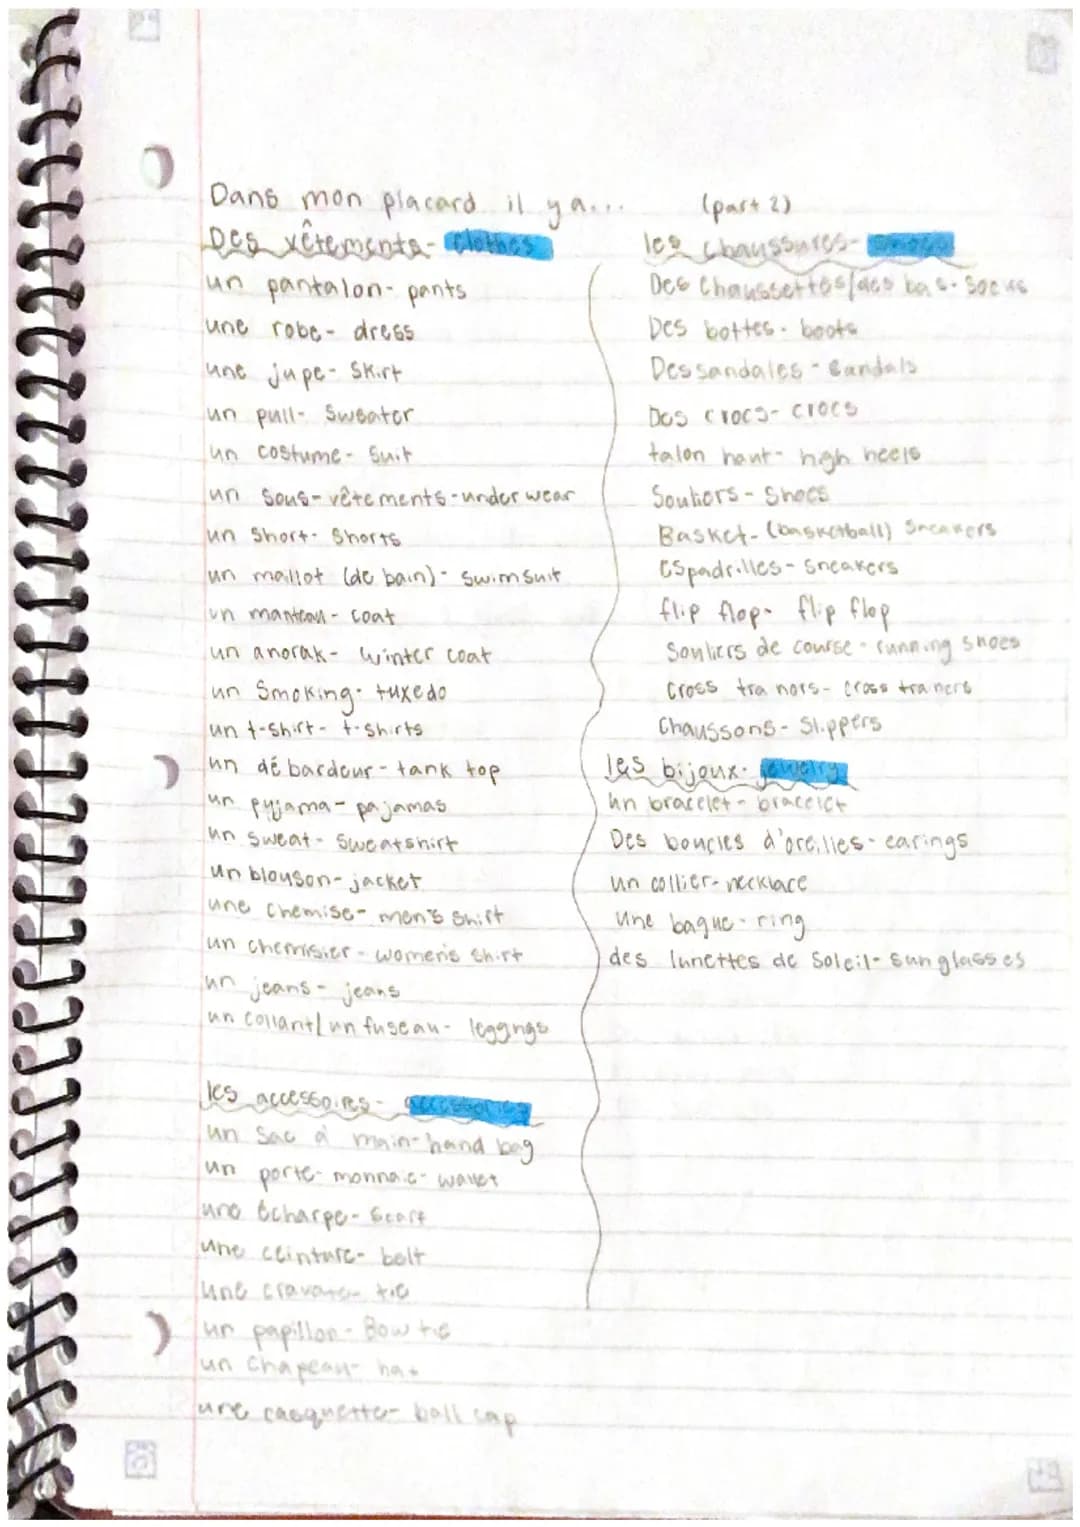 Dans mon placard il y a...
Des vêtements- clothes
un pantalon- pants
une robe- dress
une jupe- skirt
un pull- sweater
un costume- suit
un sous-vêtements-under wear
un short- shorts
un maillot (de bain)- swimsuit
un manteau- coat
un anorak- winter coat
un smoking- tuxedo
un t-shirt- t-shirts
un débardeur- tank top
un pyjama- pajamas
un sweat- sweatshirt
un blouson- jacket
une chemise- men's shirt
un chemisier- women's shirt
un jeans- jeans
un collant/un fuseau- leggings
les accessoires- accessories
un sac à main- hand bag
un porte-monnaie- wallet
une écharpe- scarf
une ceinture- belt
une cravate- tie
un papillon- Bow tie
un chapeau- hat
une casquette- ball cap
(part 2)
les chaussures- shoes
Des chaussettes/des bas- socks
Des bottes- boots
Des sandales- sandals
Des crocs- crocs
talon haut- high heels
Souliers- shoes
Basket- (basketball) sneakers
Espadrilles- sneakers
flip flop- flip flop
Souliers de course- running shoes
cross trainors- cross trainers
Chaussons- slippers
les bijoux- jewelry
un bracelet- bracelet
Des boucles d'oreilles- earings
un collier- necklace
une bague- ring
des lunettes de soleil- sunglasses